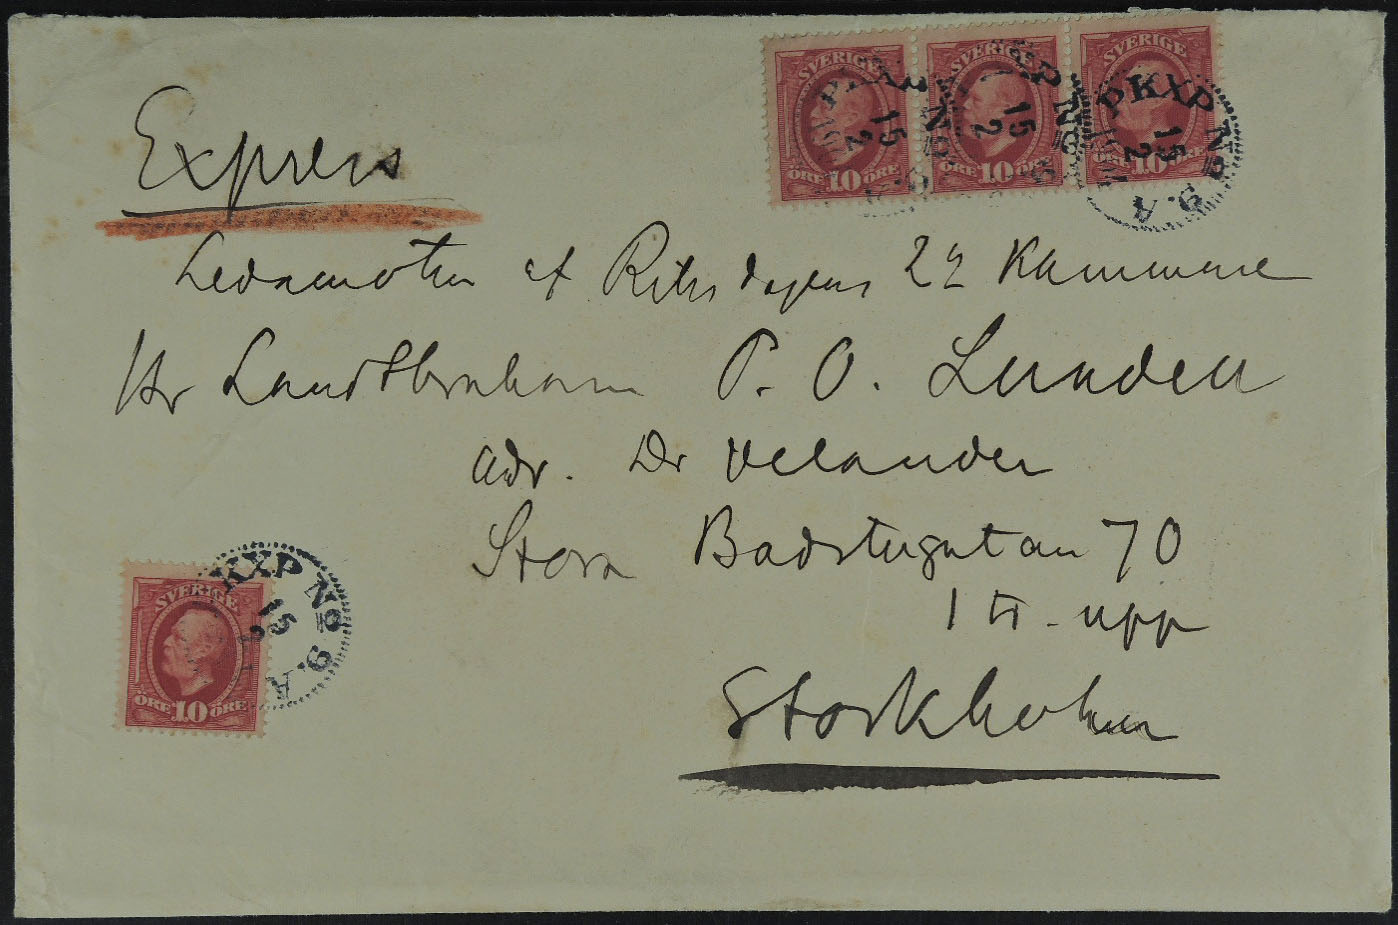 SVERIGE SVERIGE SVERIGE
ÖRE 10 ÖRE ÖRE 10 ÖRE ÖRE 10 ÖRE
PKXP No 9.A
15
2
Express
Ledamoten af Riksdagens 2a Kammare
Hr Landtbrukaren P. O. Lunden
adr. Dr Velander
Stora Badstugatan 70
1 tr. upp
Stockholm
SVERIGE
ÖRE 10 ÖRE
PKXP No 9.A
15
2